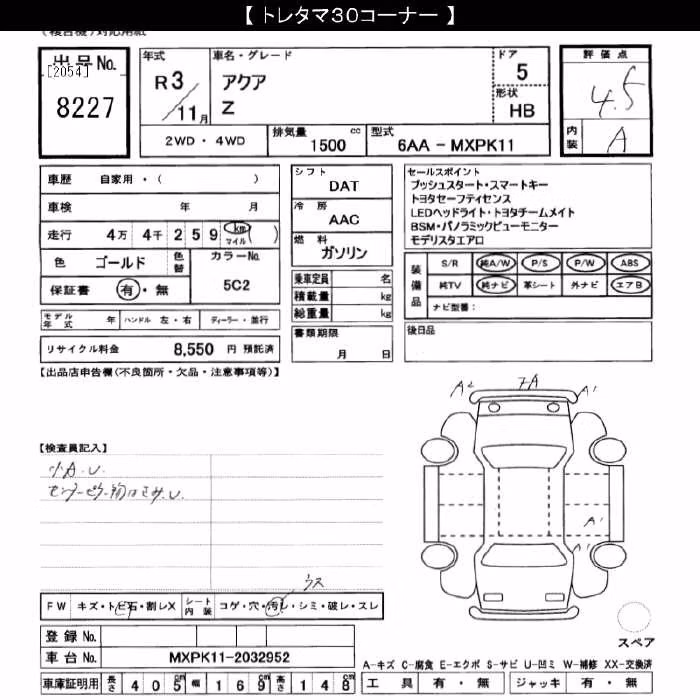 【 トレタマ30コーナー 】
(複合機)対応用紙
出品No.
[2054]
8227
年式
R 3
／11月
車名・グレード
アクア
Z
ドア
5
形状
HB
評価点
4.5
内装
A
2WD ・ 4WD
排気量 1500 cc
型式 6AA - MXPK11
車歴 自家用・( )
車検 年 月
走行 4万 4千 2 5 9 km マイル )
色 ゴールド 色替 カラーNo. 5C2
保証書 有・無
モデル年式 年 ハンドル 左・右 ディーラー・並行
リサイクル料金 8,550 円 預託済
シフト
DAT
冷房
AAC
燃料
ガソリン
乗車定員 名
積載量 kg
総重量 kg
書類期限
月 日
セールスポイント
プッシュスタート・スマートキー
トヨタセーフティセンス
LEDヘッドライト・トヨタチームメイト
BSM・パノラミックビューモニター
モデリスタエアロ
装備品
S/R 純A/W P/S P/W ABS
純TV 純ナビ 革シート 外ナビ エアB
ナビ型番:
後日品
【出品店申告欄(不良箇所・欠品・注意事項等)】
【検査員記入】
小A.U.
A2 7A A1
A1
A1
ウス
FW キズ・トビ石・割レX シート内装 コゲ・穴・汚レ・シミ・破レ・スレ
スペア
登録 No.
車台 No. MXPK11-2032952
車庫証明用 長さ 4 0 5 cm 幅 1 6 9 cm 高さ 1 4 8 cm
A-キズ C-腐食 E-エクボ S-サビ U-凹ミ W-補修 XX-交換済
工具 有・無 ジャッキ 有・無